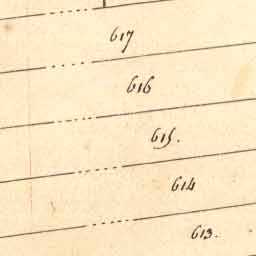 617
616
615.
614
613.